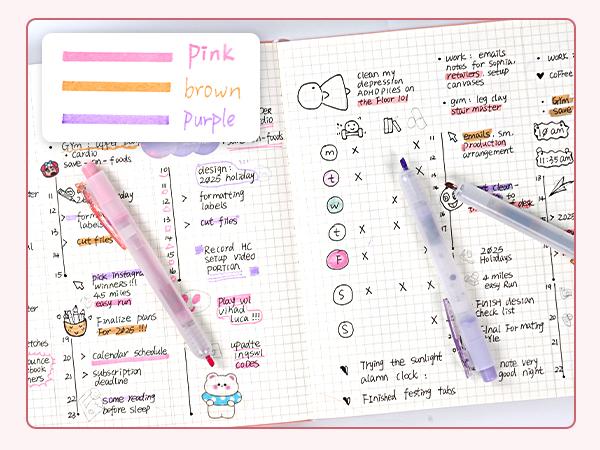 Pink
brown
Purple
• Cardio
- on - foods
10
11
12
13
14
15
16
design:
2025 holiday
> formatting
labels
> cut files
Record HC
setup video
portion
> cut files
winners!!!
45 miles
easy run
Finalize plans
For 2025 !!!
> Calendar schedule
> subscription
deadline
some reading
before sleep
19
20
21
22
Play w/
luca !!!
update
codes
clean my
depression
ADHD piles on
the Floor lol
m x x
t x
w x
t x x
F x
S x x
S
Trying the sunlight
alarm clock :
Finished festing tabs
• work : emails
notes for Sophia,
retailers. setup
canvases
• gym: leg day
stair master
emails, sm.
production
arrangement
11
12
13
14
15
2025
Holidays
4 miles
easy Run
Finish design
check list
note very
good night
19
20
21
22
• work :
♥ coffee
Gym
save
10 am
11:35 am
> 2025